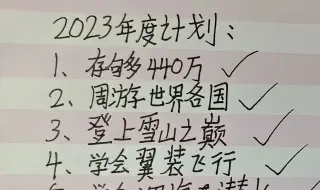 2023年度计划:
1、存够440万 ✓
2、周游世界各国 ✓
3、登上雪山之巅 ✓
4、学会翼装飞行 ✓